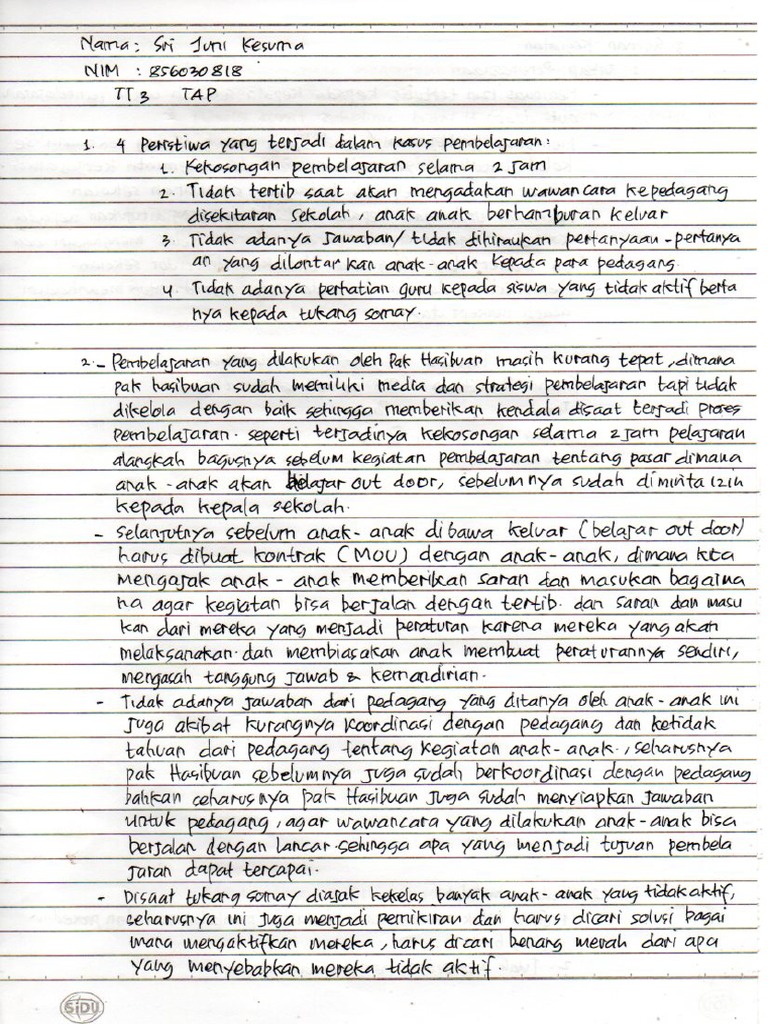 Nama: Sri Juni Kesuma
NIM : 856030818
TT 3 TAP
1. 4 Peristiwa yang terjadi dalam kasus pembelajaran:
1. Kekosongan pembelajaran selama 2 jam
2. Tidak tertib saat akan mengadakan wawancara kepedagang
disekitaran sekolah, anak anak berhamburan keluar
3. Tidak adanya jawaban/ tidak dihiraukan pertanyaan-pertanya
an yang dilontarkan anak-anak kepada para pedagang.
4. Tidak adanya perhatian guru kepada siswa yang tidak aktif berta
nya kepada tukang somay.
2. - Pembelajaran yang dilakukan oleh Pak Hasibuan masih kurang tepat, dimana
pak hasibuan sudah memiliki media dan strategi pembelajaran tapi tidak
dikelola dengan baik sehingga memberikan kendala disaat terjadi proses
pembelajaran. seperti terjadinya kekosongan selama 2 jam pelajaran
alangkah bagusnya sebelum kegiatan pembelajaran tentang pasar dimana
anak-anak akan belajar out door, sebelumnya sudah diminta izin
kepada kepala sekolah.
- Selanjutnya sebelum anak-anak dibawa keluar (belajar out door)
harus dibuat kontrak (MOU) dengan anak-anak, dimana kita
mengajak anak-anak memberikan saran dan masukan bagaima
na agar kegiatan bisa berjalan dengan tertib. dan saran dan masu
kan dari mereka yang menjadi peraturan karena mereka yang akan
melaksanakan. dan membiasakan anak membuat peraturannya sendiri,
mengasah tanggung jawab & kemandirian.
- Tidak adanya jawaban dari pedagang yang ditanya oleh anak-anak ini
juga akibat kurangnya koordinasi dengan pedagang dan ketidak
tahuan dari pedagang tentang kegiatan anak-anak, seharusnya
pak Hasibuan sebelumnya juga sudah berkoordinasi dengan pedagang
bahkan seharusnya pak Hasibuan juga sudah menyiapkan jawaban
untuk pedagang, agar wawancara yang dilakukan anak-anak bisa
berjalan dengan lancar. sehingga apa yang menjadi tujuan pembela
jaran dapat tercapai.
- Disaat tukang somay diajak kekelas banyak anak-anak yang tidak aktif,
seharusnya ini juga menjadi pemikiran dan harus dicari solusi bagai
mana mengaktifkan mereka, harus dicari benang merah dari apa
yang menyebabkan mereka tidak aktif.
SIDU